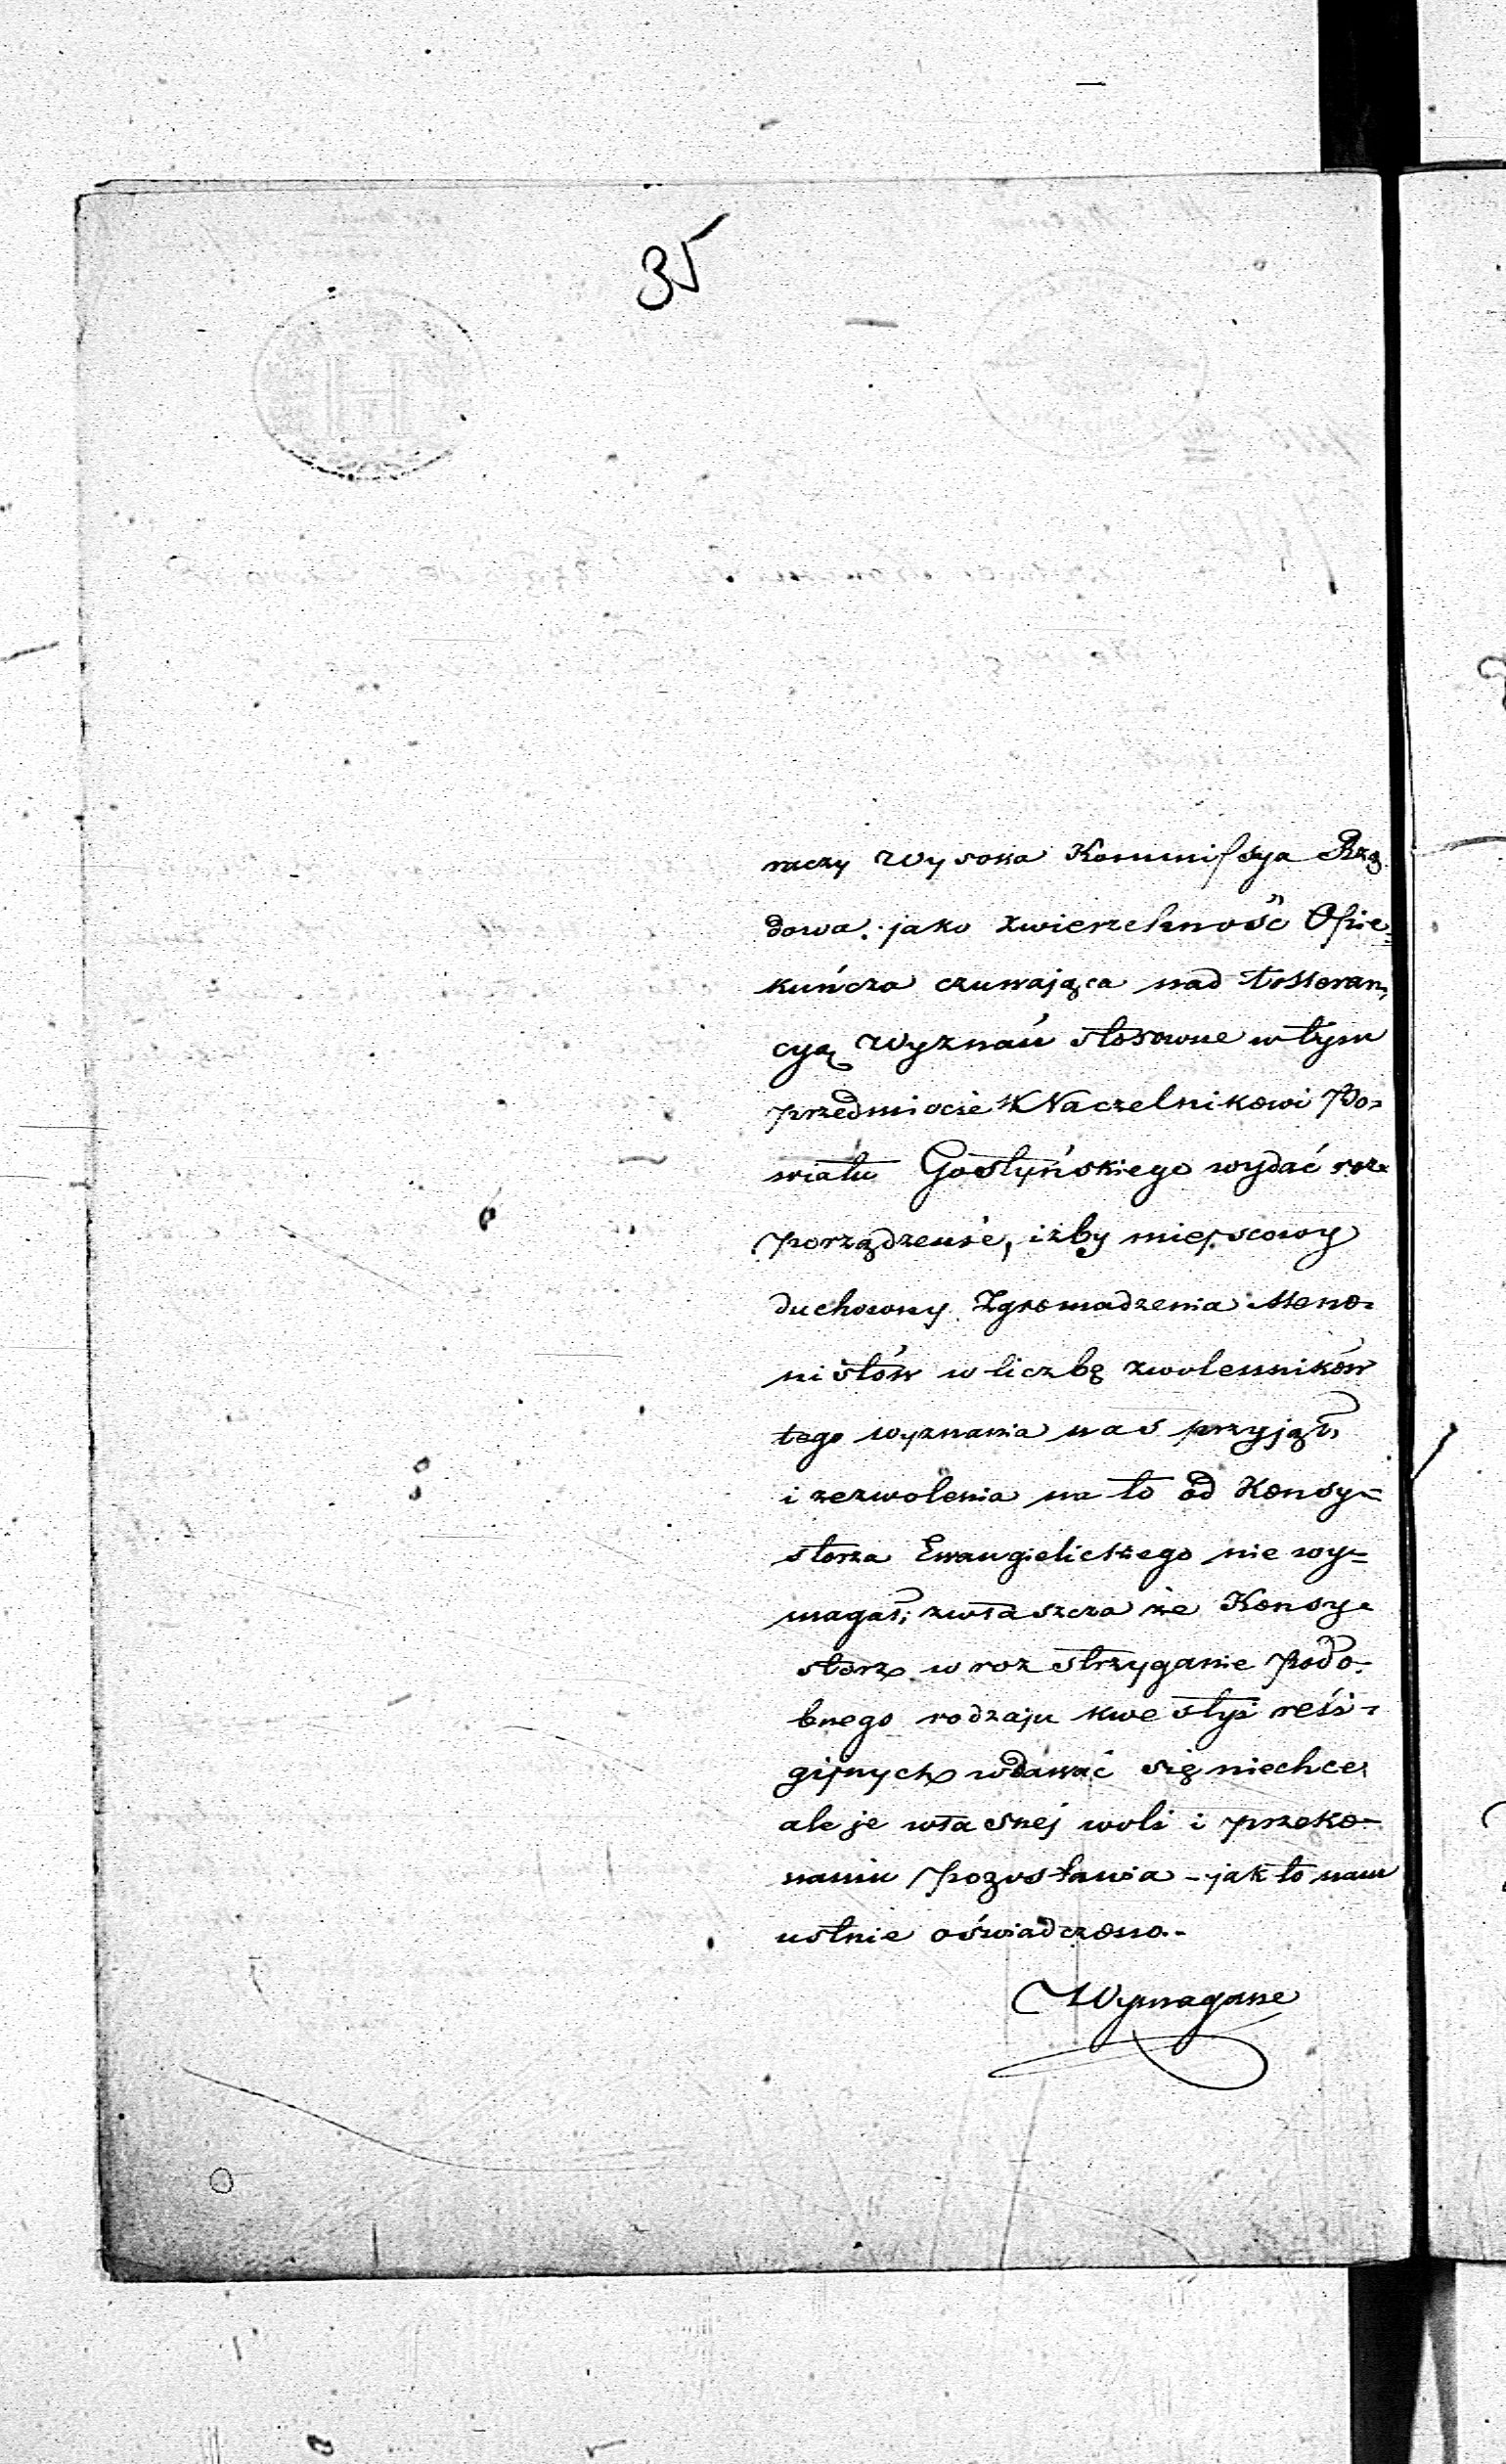 35
raczy Wysoka Kommissya Rzą
dowa. jako zwierzchność Opie-
kuńcza czuwająca nad tolleran,
cyą Wyznań stosowne w tym
przedmiocie Naczelnikowi Po-
wiatu Gostyńskiego wydać roz-
porządzenie, iżby miejscowy
duchowny Zgromadzenia Meno-
nistów w liczbę zwolenników
tego wyznania nas przyjął,
i zezwolenia na to od Konsy-
storza Ewangielickiego nie wy-
magał; zwłaszcza że Konsy-
storz w rozstrzyganie podo-
bnego rodzaju kwestyi reli-
gijnych wdawać się niechce,
ale je własnej woli i przeko-
naniu pozostawia - jak to nam
ustnie oświadczono.-
Wymagane